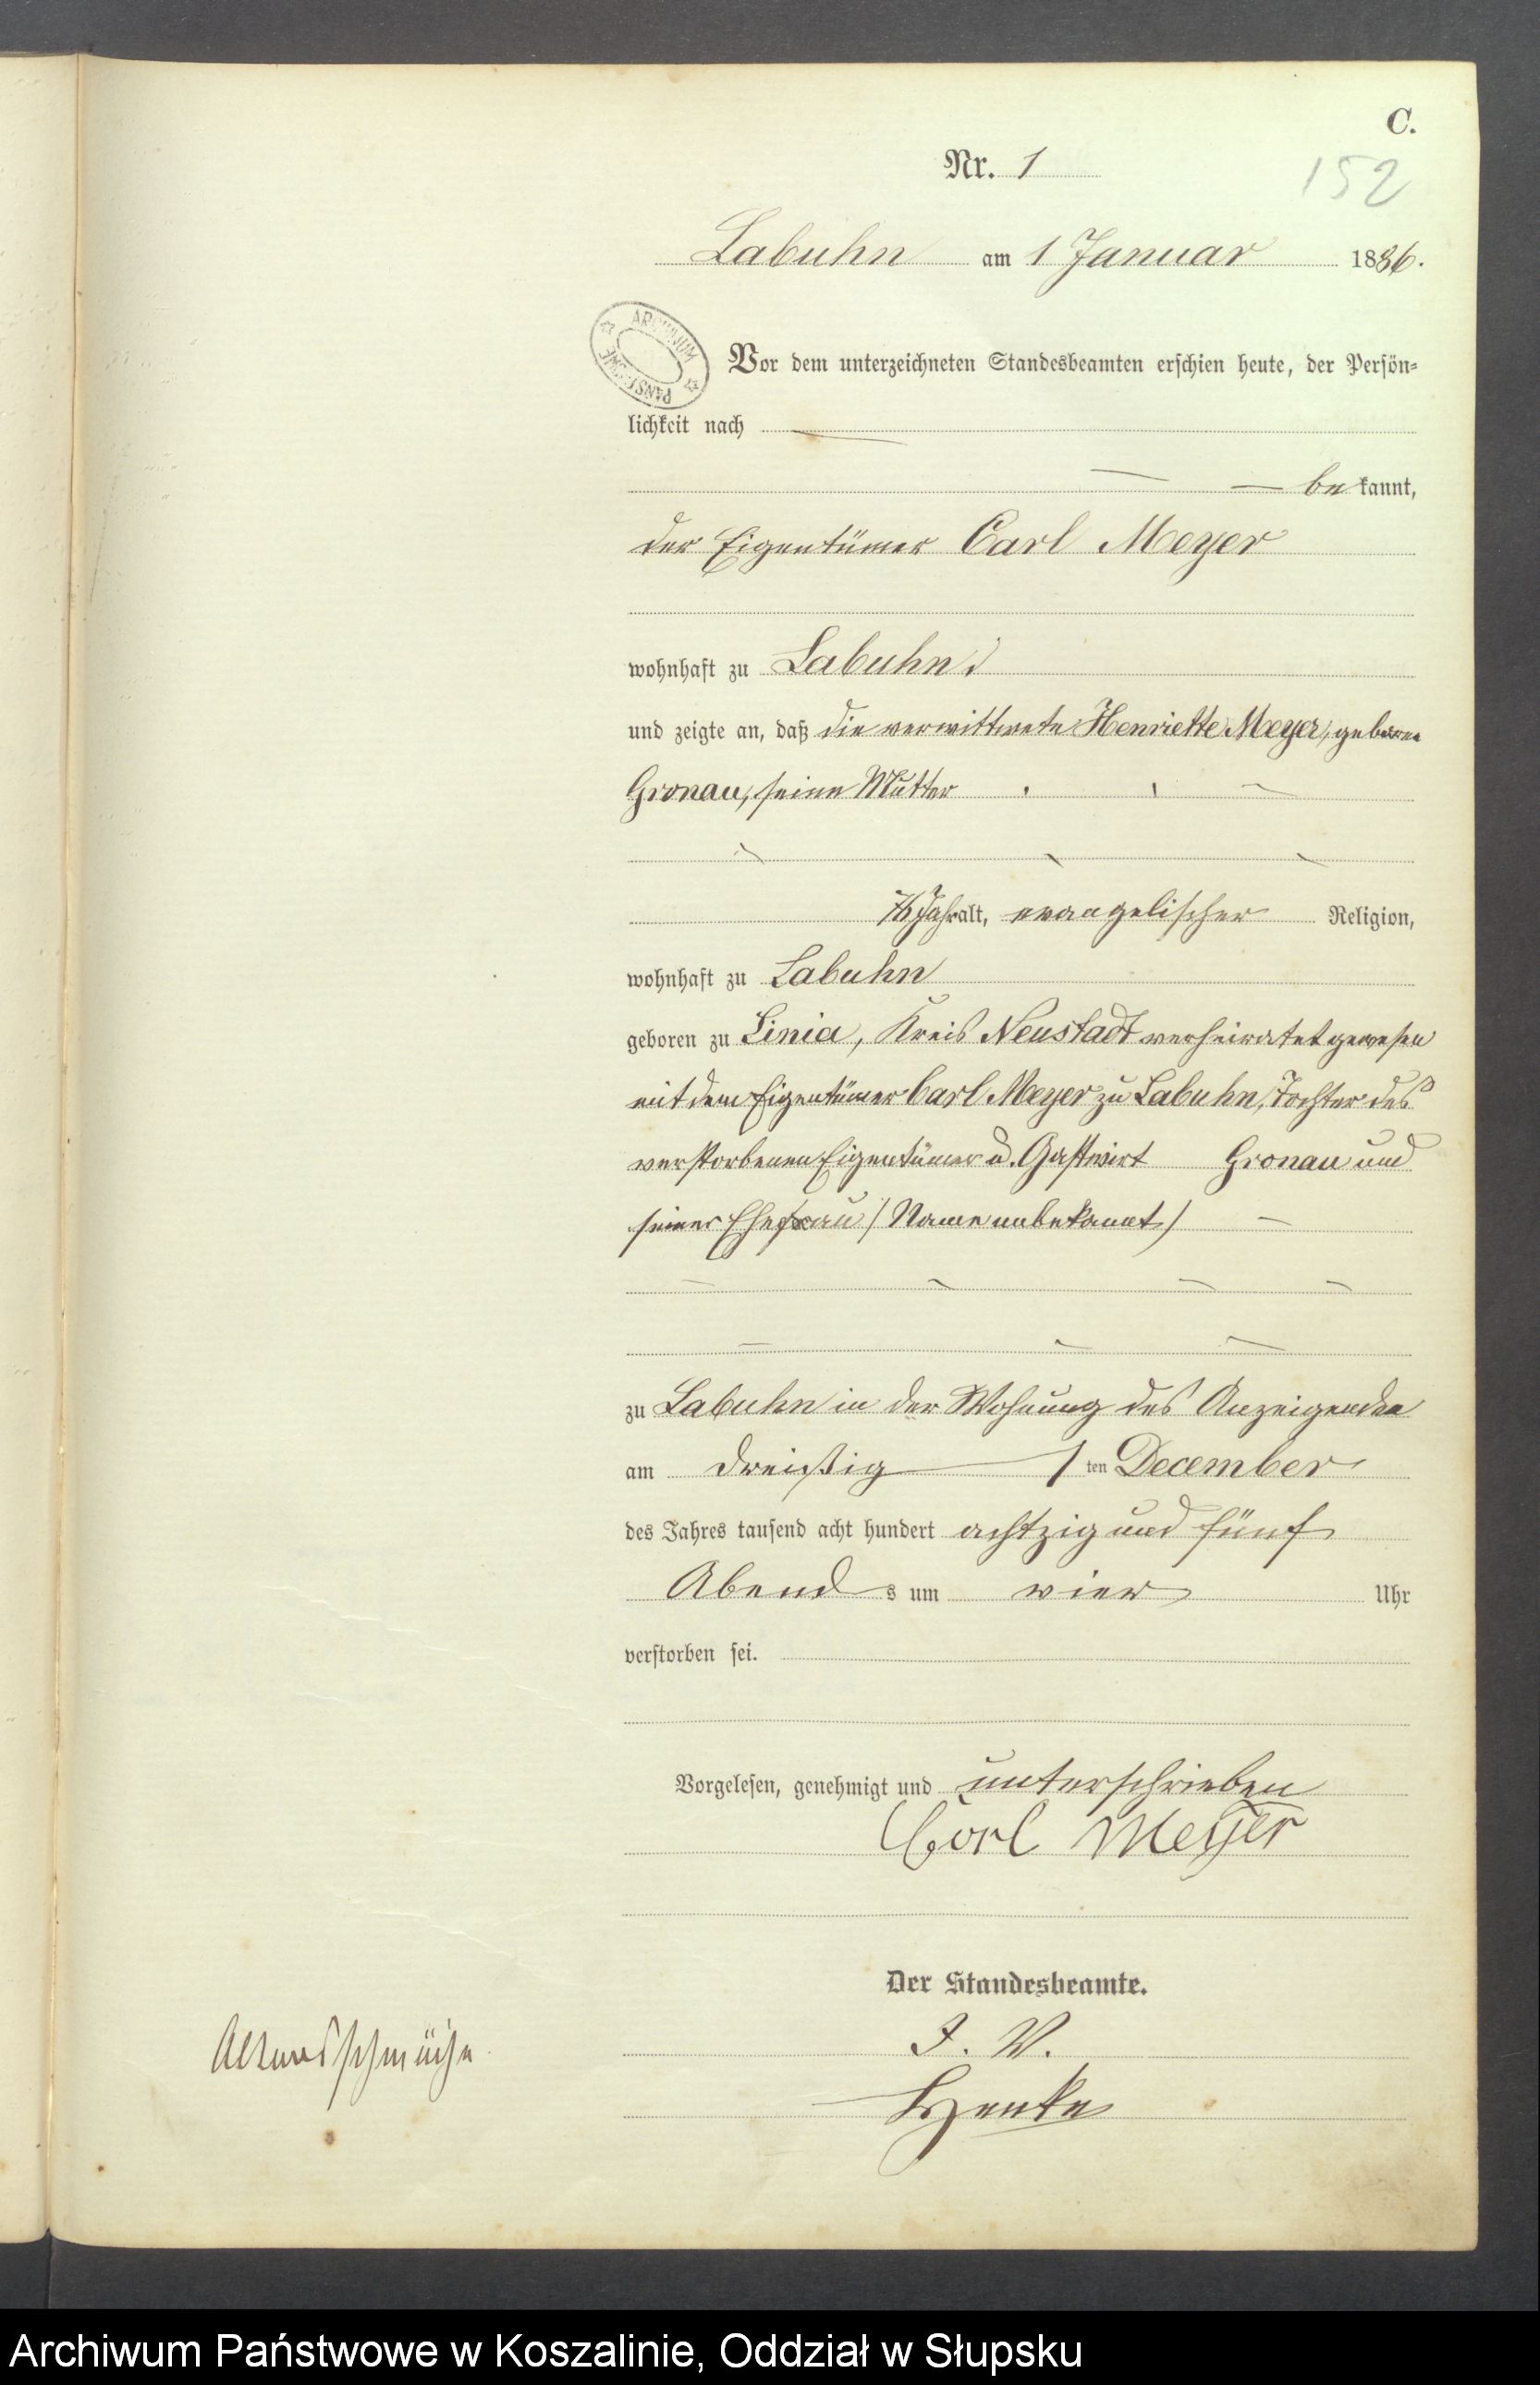 C.
Nr. 1
152
Labuhn am 1 Januar 1886.
ARCHIWUM PAŃSTWOWE
Vor dem unterzeichneten Standesbeamten erschien heute, der Persön-
lichkeit nach
be kannt,
der Eigentümer Carl Meyer
wohnhaft zu Labuhn
und zeigte an, daß die verwittwete Henriette Meyer, geborne
Gronau, seine Mutter
Jahr alt, evangelischer Religion,
wohnhaft zu Labuhn
geboren zu Linia, Kreis Neustadt verheiratet gewesen
mit dem Eigentümer Carl Meyer zu Labuhn, Tochter des
verstorbenen Eigentümer u. Gastwirt Gronau und
seiner Ehefrau (Name unbekannt)
zu Labuhn in der Wohnung des Anzeigenden
am dreißig ten December
des Jahres tausend acht hundert achtzig und fünf
Abend s um vier Uhr
verstorben sei.
Vorgelesen, genehmigt und unterschrieben
Carl Meyer
Der Standesbeamte.
Altersschwäche
I. V.
Henke
Archiwum Państwowe w Koszalinie, Oddział w Słupsku